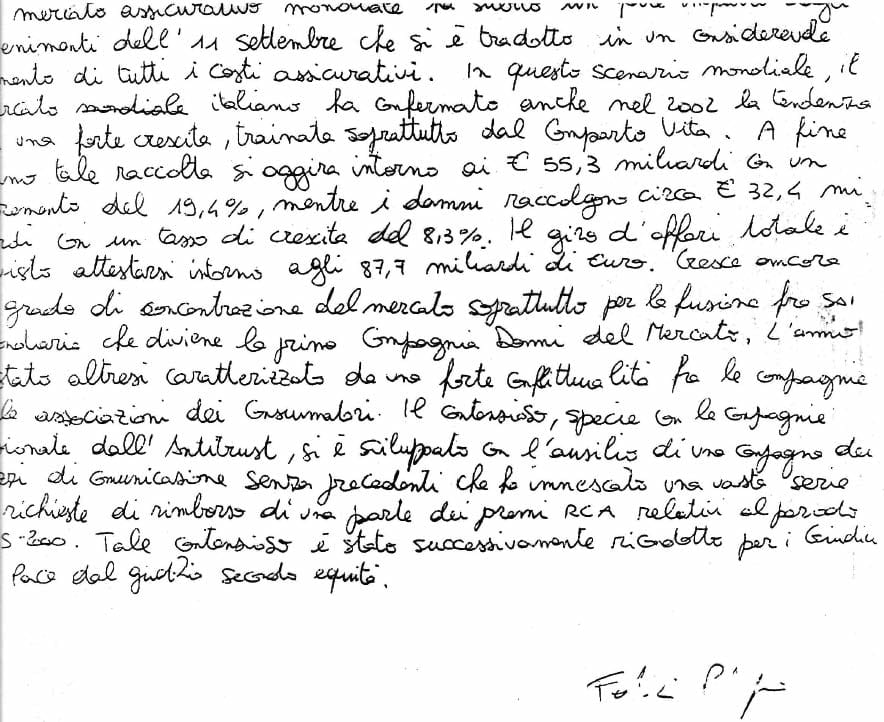 mercato assicurativo mondiale
enimenti dell' 11 settembre che si è tradotto in un considerevole
mento di tutti i costi assicurativi. In questo scenario mondiale, il
rcato mondiale italiano ha confermato anche nel 2002 la tendenza
una forte crescita, trainata soprattutto dal Comparto Vita. A fine
nno tale raccolta si aggira intorno ai € 55,3 miliardi con un
remento del 19,4%, mentre i danni raccolgono circa € 32,4 mi
rdi con un tasso di crescita del 8,3%. Il giro d'affari totale è
isto attestarsi intorno agli 87,7 miliardi di Euro. Cresce ancora
grado di concentrazione del mercato soprattutto per la fusione fra Sai
ondiaria che diviene la prima Compagnia Danni del Mercato. L'anno
tato altresì caratterizzato da una forte conflittualità fra le compagnie
le associazioni dei Consumatori. Il contenzioso, specie con le compagnie
ionate dall'Antitrust, si è sviluppato con l'ausilio di una campagna dei
ezzi di comunicazione senza precedenti che ha innescato una vasta serie
richieste di rimborso di una parte dei premi RCA relativi al periodo
5-2000. Tale contenzioso è stato successivamente ricondotto per i Giudici
Pace dal giudizio secondo equità.